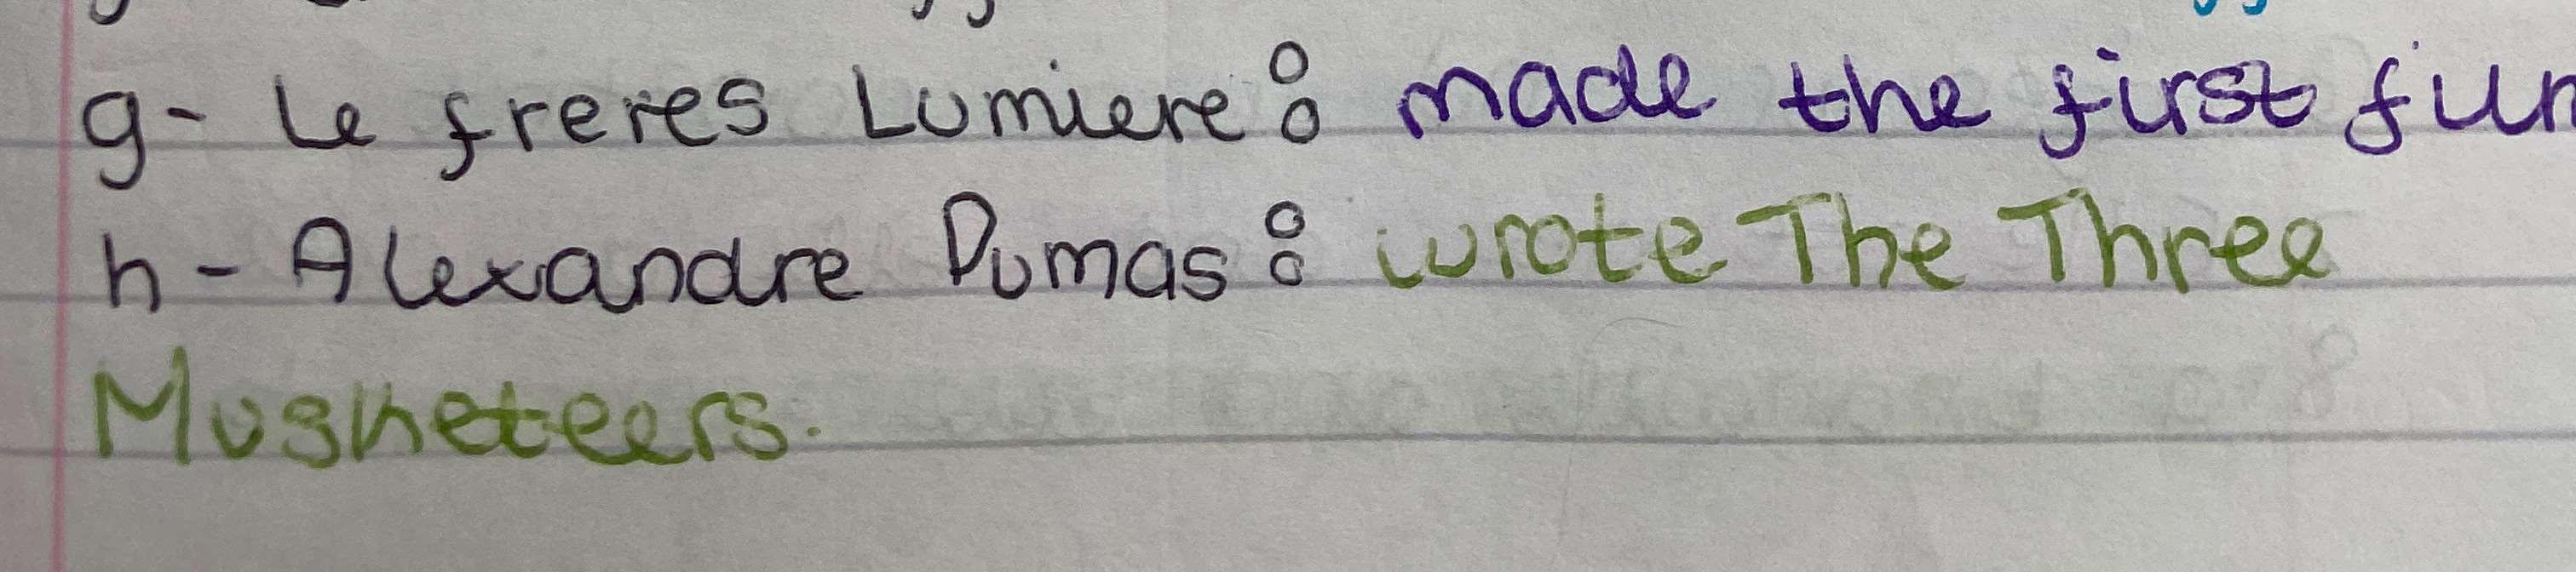 g- Le freres Lumiere: made the first film
h - Alexandre Dumas: wrote The Three
Musketeers.